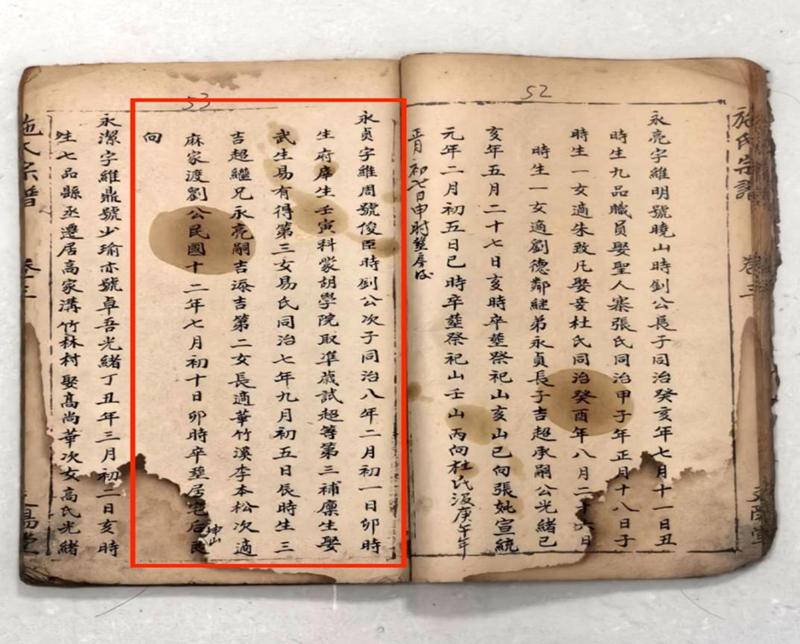 52
施氏宗譜
卷三
永亮字維明號曉山時劉公長子同治癸亥年七月十一日丑
時生九品職員娶聖人寨張氏同治甲子年正月十八日子
時生一女適朱致凡娶妾杜氏同治癸酉年八月二十六日
時生一女適劉德鄰継弟永貞長子吉超承嗣公光緒己
亥年五月二十七日亥時卒塟祭祀山亥山巳向張妣宣統
元年二月初五日巳時卒塟祭祀山壬山丙向杜氏沒庚午年
正月初七日申时
53
永貞字維周號俊臣時劉公次子同治八年二月初一日卯時
生府庠生壬寅科蒙胡學院取準歲試超等第三補廩生娶
武生易有得第三女易氏同治七年九月初五日辰時生三
吉超繼兄永亮嗣吉添吉第二女長適華竹溪李本松次適
麻家渡劉公民國十二年七月初十日卯時卒塟居宅后
坤山
向
永潔字維鼎號少瑜亦號卓吾光緒丁丑年三月初二日亥時
生七品縣丞遷居高家溝竹林村娶髙尚華次女高氏光緒
施氏宗譜
卷三